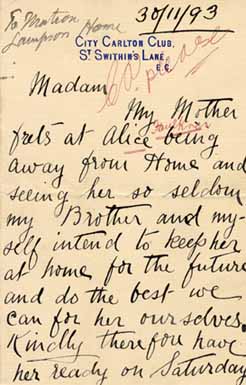 30/11/93
To Motion
Lampson Home
CITY CARLTON CLUB,
ST SWITHIN'S LANE,
E.C.
please
Madam,
My Mother
Faulkner
frets at Alice being
away from Home and
seeing her so seldom
my Brother and my-
self intend to keep her
at home for the future
and do the best we
can for her ourselves
Kindly therefore have
her ready on Saturday